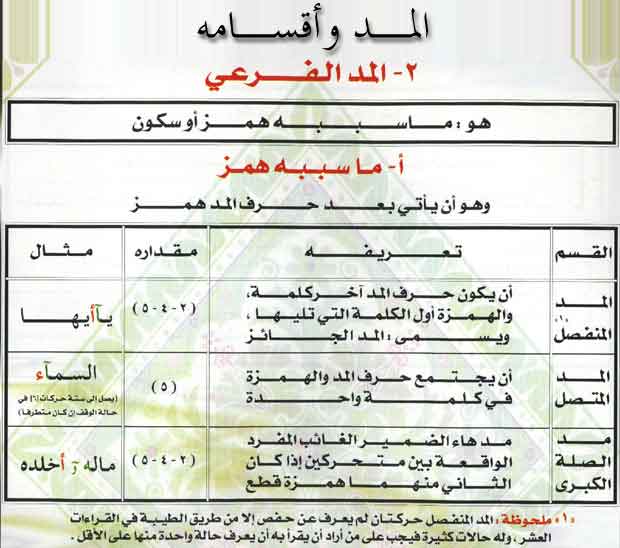 المد وأقسامه
٢- المد الفرعي
هو : ما سببه همز أو سكون
أ- ما سببه همز
وهو أن يأتي بعد حرف المد همز
القسم تعريفه مقداره مثال
المد المنفصل (١) أن يكون حرف المد آخر كلمة، (٢-٤-٥) يآأيها
والهمزة أول الكلمة التي تليها ،
ويسمى : المد الجائز
المد المتصل أن يجتمع حرف المد والهمزة (٥) السمآء
في كلمة واحدة
(يصل إلى ستة حركات [٦] في
حالة الوقف إن كان متطرفا)
مد الصلة الكبرى مد هاء الضمير الغائب المفرد (٢-٤-٥) ماله ۥٓ أخلده
الواقعة بين متحركين إذا كان
الثاني منهما همزة قطع
«١» ملحوظة : المد المنفصل حركتان لم يعرف عن حفص إلا من طريق الطيبة في القراءات
العشر ، وله حالات كثيرة فيجب على من أراد أن يقرأ به أن يعرف حالة واحدة منها على الأقل .